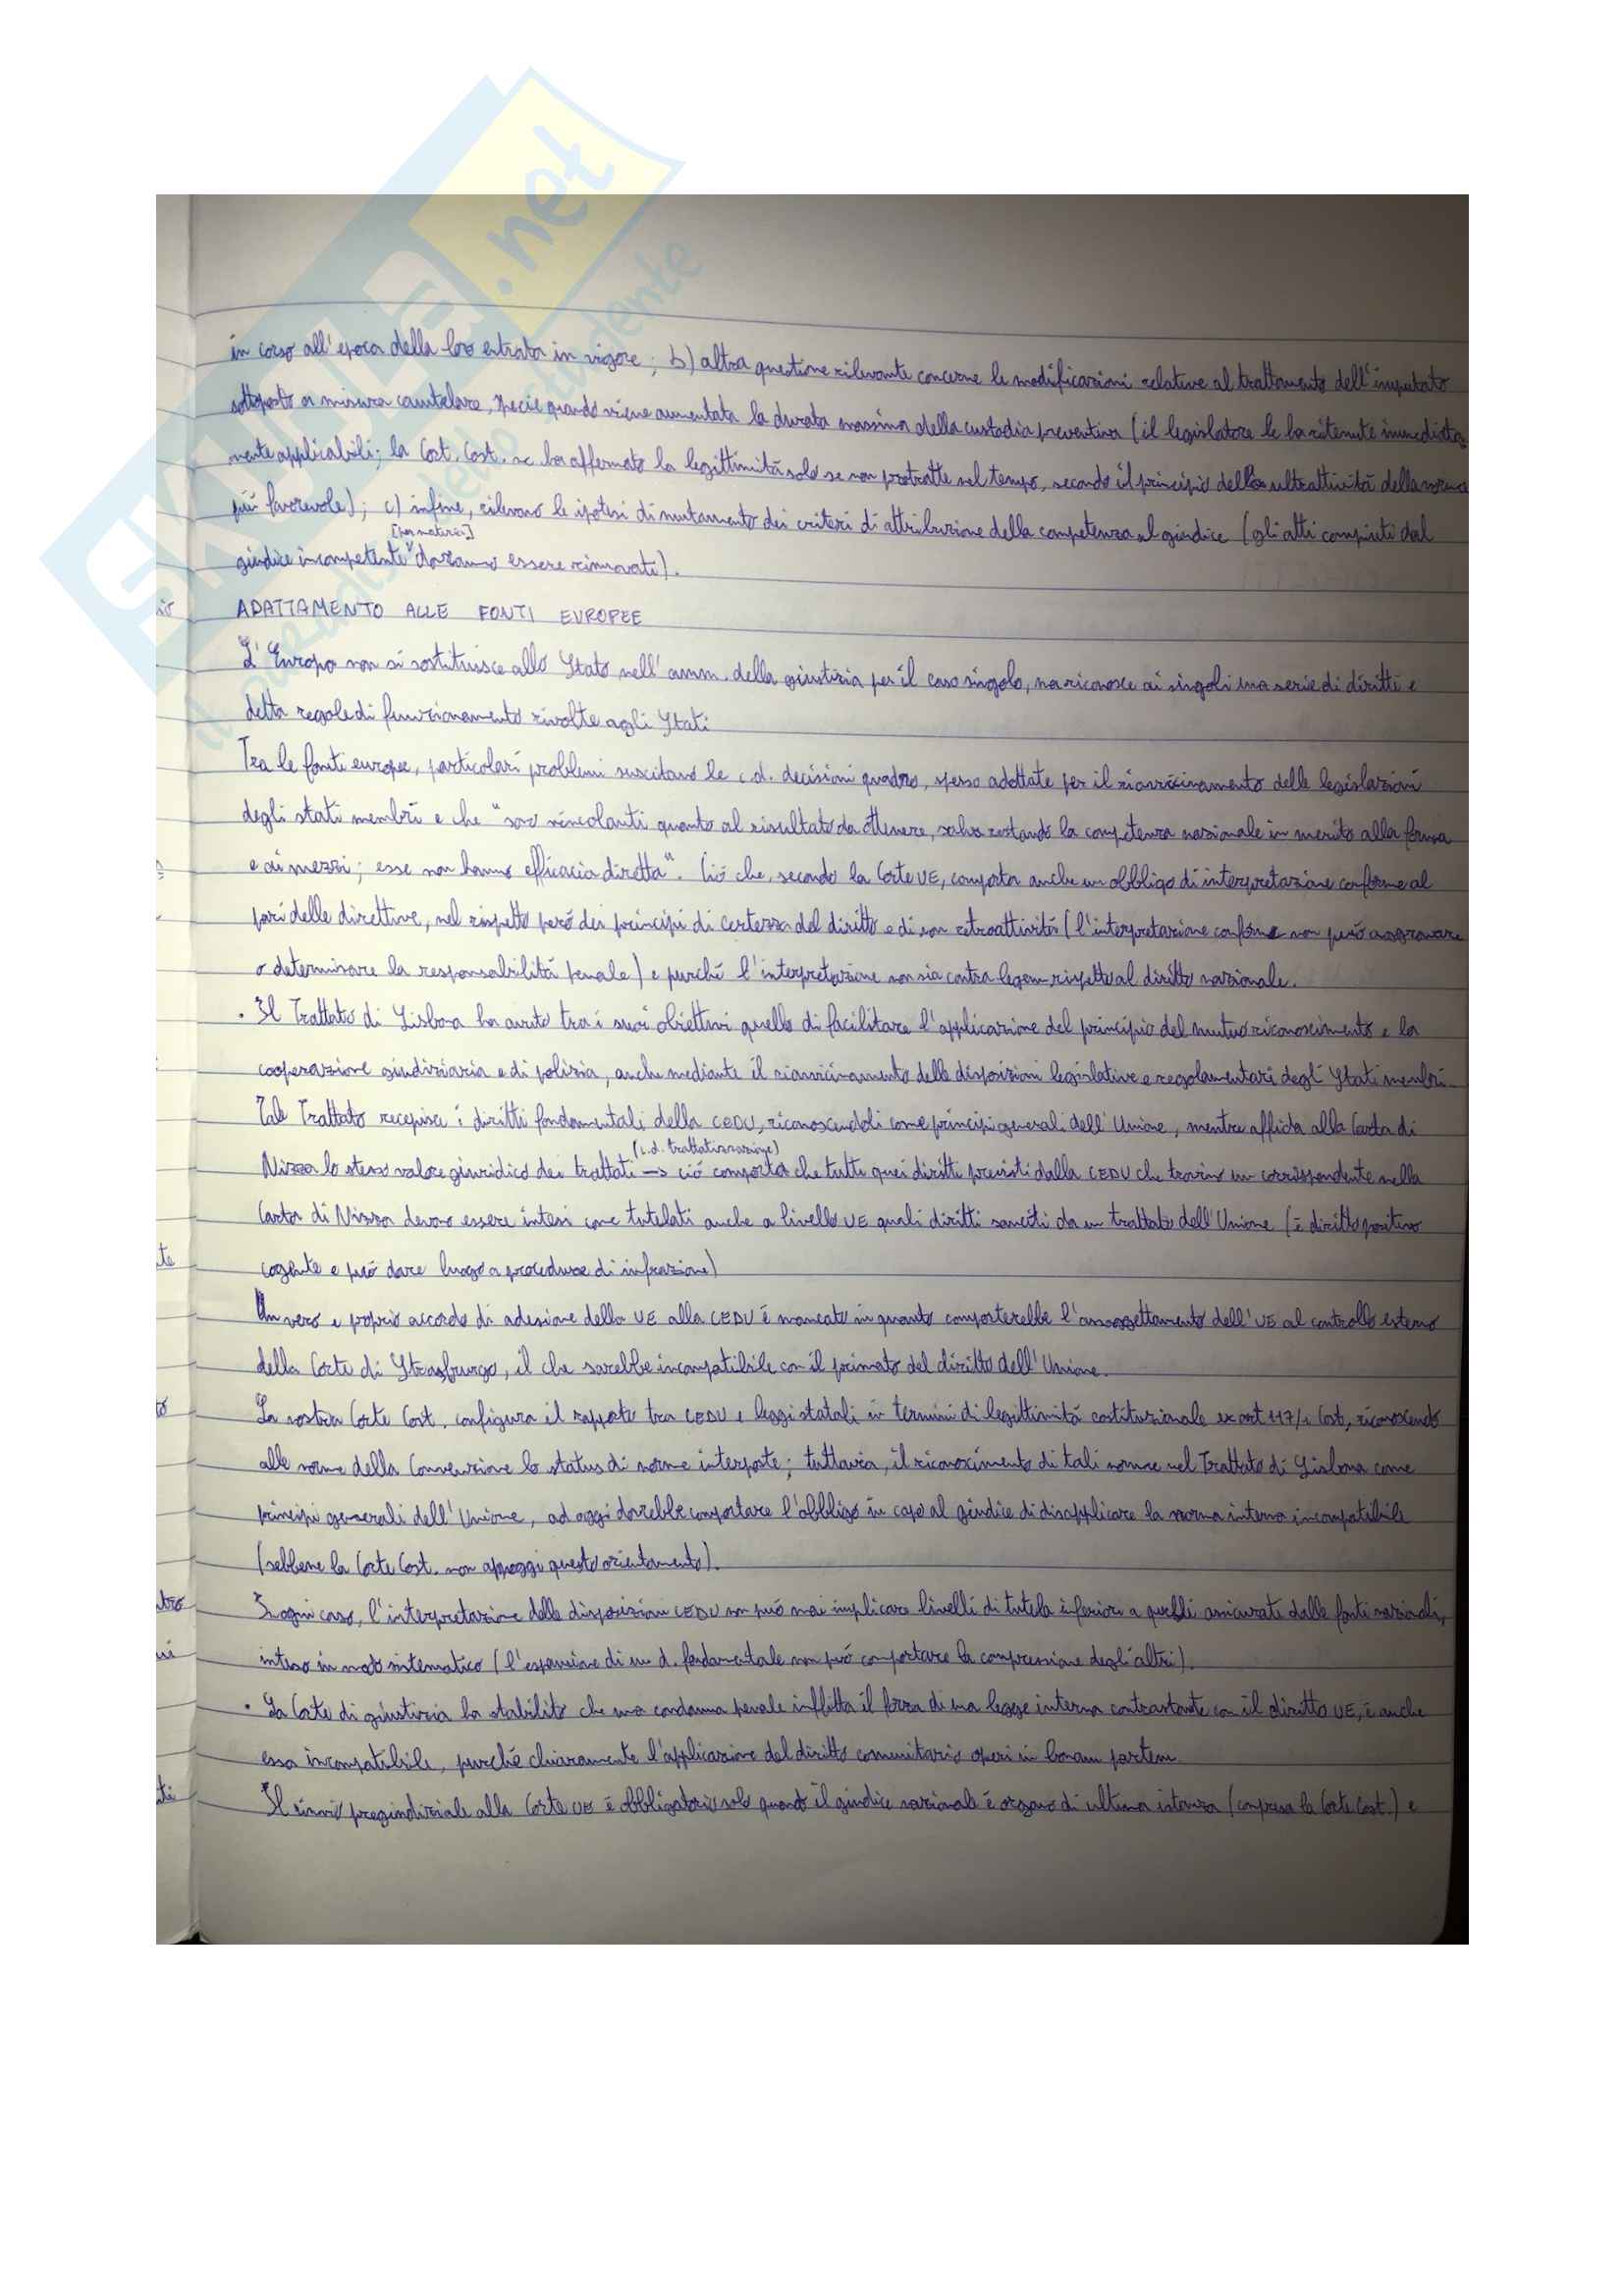 SKUOLA.net
il paradiso dello studente
in corso all'epoca della loro entrata in vigore; b) altra questione rilevante concerne le modificazioni relative al trattamento dell'imputato
sottoposto a misura cautelare, specie quando viene aumentata la durata massima della custodia preventiva (il legislatore le ha ritenute immediata
mente applicabili; la Cort. Cost. ne ha affermato la legittimità solo se non protratte nel tempo, secondo il principio della ultrattività della norma
più favorevole); c) infine, rilevano le ipotesi di mutamento dei criteri di attribuzione della competenza al giudice (gli atti compiuti dal
[per materia]
giudice incompetente dovranno essere rinnovati).
ADATTAMENTO ALLE FONTI EUROPEE
L'Europa non si sostituisce allo Stato nell'amm. della giustizia per il caso singolo, ma riconosce ai singoli una serie di diritti e
detta regole di funzionamento rivolte agli Stati
Tra le fonti europee, particolari problemi suscitano le c.d. decisioni quadro, spesso adottate per il riavvicinamento delle legislazioni
degli stati membri e che "sono vincolanti quanto al risultato da ottenere, salva restando la competenza nazionale in merito alla forma
e ai mezzi; esse non hanno efficacia diretta". Ciò che, secondo la Corte UE, comporta anche un obbligo di interpretazione conforme al
pari delle direttive, nel rispetto però dei principi di certezza del diritto e di non retroattività (l'interpretazione conforme non può aggravare
o determinare la responsabilità penale) e purché l'interpretazione non sia contra legem rispetto al diritto nazionale.
• Il Trattato di Lisbona ha avuto tra i suoi obiettivi quello di facilitare l'applicazione del principio del mutuo riconoscimento e la
cooperazione giudiziaria e di polizia, anche mediante il riavvicinamento delle disposizioni legislative e regolamentari degli Stati membri.
Tale Trattato recepisce i diritti fondamentali della CEDU, riconoscendoli come principi generali dell'Unione, mentre affida alla Carta di
(c.d. trattatizzazione)
Nizza lo stesso valore giuridico dei trattati → ciò comporta che tutti quei diritti previsti dalla CEDU che trovino un corrispondente nella
Carta di Nizza devono essere intesi come tutelati anche a livello UE quali diritti sanciti da un trattato dell'Unione (è diritto positivo
cogente e può dare luogo a procedure di infrazione)
Un vero e proprio accordo di adesione della UE alla CEDU è mancato in quanto comporterebbe l'assoggettamento dell'UE al controllo esterno
della Corte di Strasburgo, il che sarebbe incompatibile con il primato del diritto dell'Unione.
La nostra Corte Cost. configura il rapporto tra CEDU e leggi statali in termini di legittimità costituzionale ex art 117/1 Cost, riconoscendo
alle norme della Convenzione lo status di norme interposte; tuttavia, il riconoscimento di tali norme nel Trattato di Lisbona come
principi generali dell'Unione, ad oggi dovrebbe comportare l'obbligo in capo al giudice di disapplicare la norma interna incompatibile
(sebbene la Corte Cost. non appoggi questo orientamento).
In ogni caso, l'interpretazione delle disposizioni CEDU non può mai implicare livelli di tutela inferiori a quelli assicurati dalle fonti nazionali,
inteso in modo sistematico (l'espansione di un d. fondamentale non può comportare la compressione degli altri).
• La Corte di giustizia ha stabilito che una condanna penale inflitta il forza di una legge interna contrastante con il diritto UE, è anche
essa incompatibile, purché chiaramente l'applicazione del diritto comunitario operi in bonam partem.
Il rinvio pregiudiziale alla Corte UE è obbligatorio solo quando il giudice nazionale è organo di ultima istanza (compresa la Corte Cost.) e